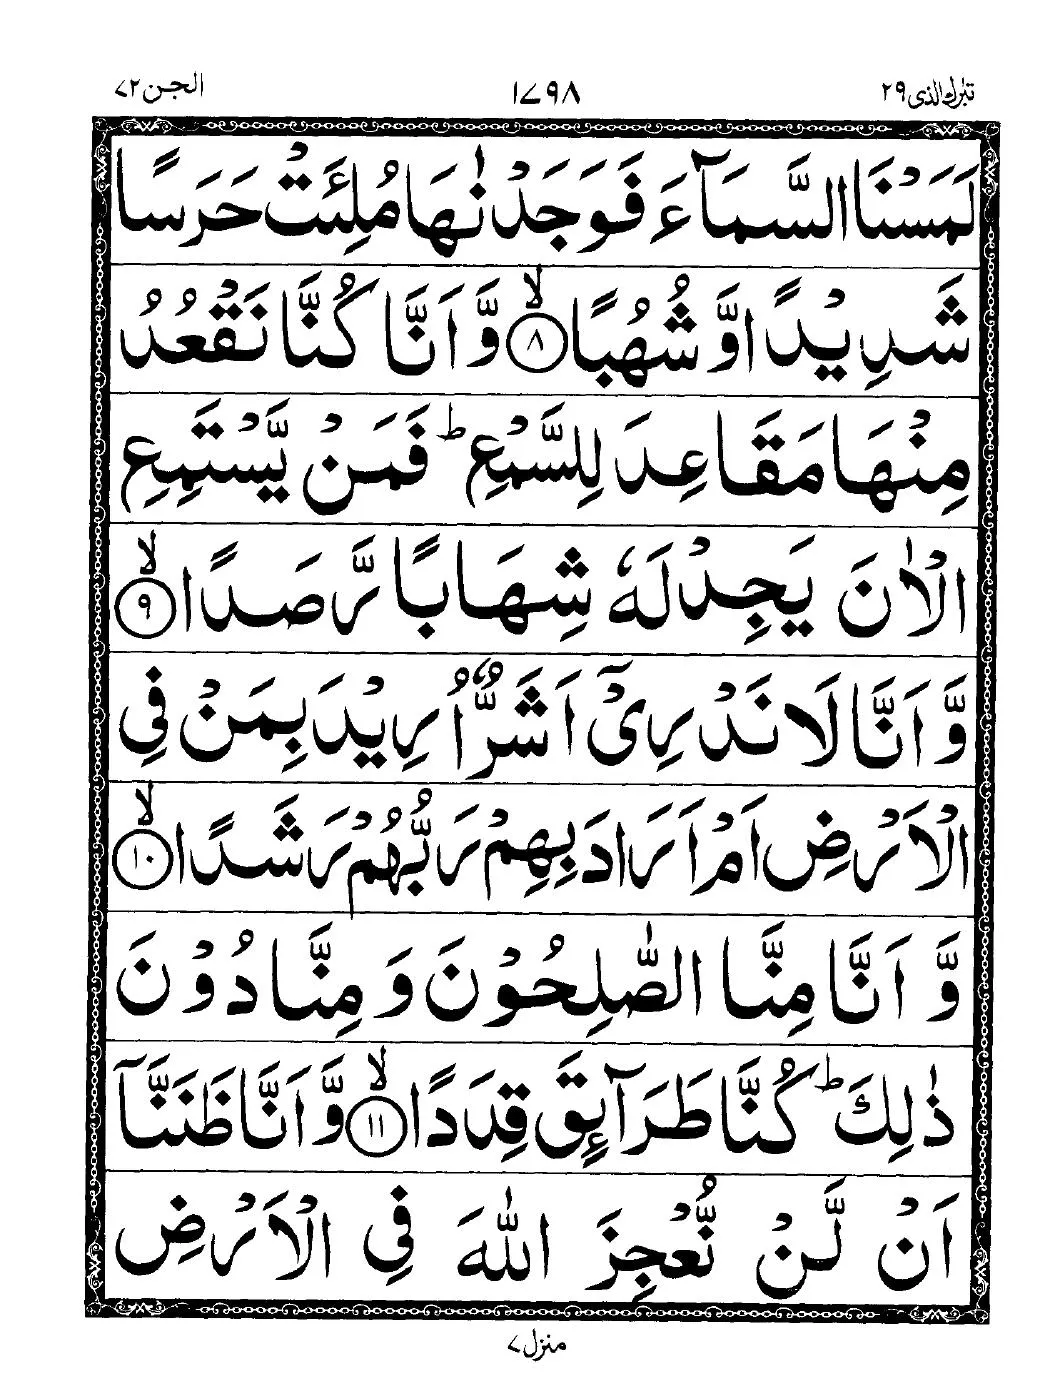 تبٰرك الذی ۲۹
۱۷۹۸
الجن ۷۲
لَمَسْنَا السَّمَآءَ فَوَجَدْنٰهَا مُلِئَتْ حَرَسًا
شَدِيْدًا وَّ شُهُبًا ۙ‏﴿۸﴾ وَّ اَنَّا كُنَّا نَقْعُدُ
مِنْهَا مَقَاعِدَ لِلسَّمْعِ ؕ فَمَنْ يَّسْتَمِعِ
الْاٰنَ يَجِدْ لَهٗ شِهَابًا رَّصَدًا ۙ‏﴿۹﴾
وَّ اَنَّا لَا نَدْرِیْۤ اَشَرٌّ اُرِيْدَ بِمَنْ فِی
الْاَرْضِ اَمْ اَرَادَ بِهِمْ رَبُّهُمْ رَشَدًا ۙ‏﴿۱۰﴾
وَّ اَنَّا مِنَّا الصّٰلِحُوْنَ وَ مِنَّا دُوْنَ
ذٰلِكَ ؕ كُنَّا طَرَآئِقَ قِدَدًا ۙ‏﴿۱۱﴾ وَّ اَنَّا ظَنَنَّآ
اَنْ لَّنْ نُّعْجِزَ اللّٰهَ فِی الْاَرْضِ
منزل ۷